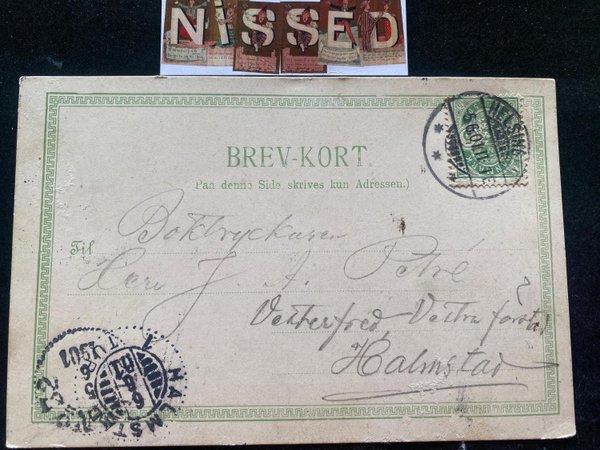 NiSSED
BREV-KORT.
(Paa denne Side skrives kun Adressen.)
Til
Boktryckaren
Herr J. A. Petré
Vesterfred, Vestra första
?
Halmstad
HELSING
HALMSTAD
1901